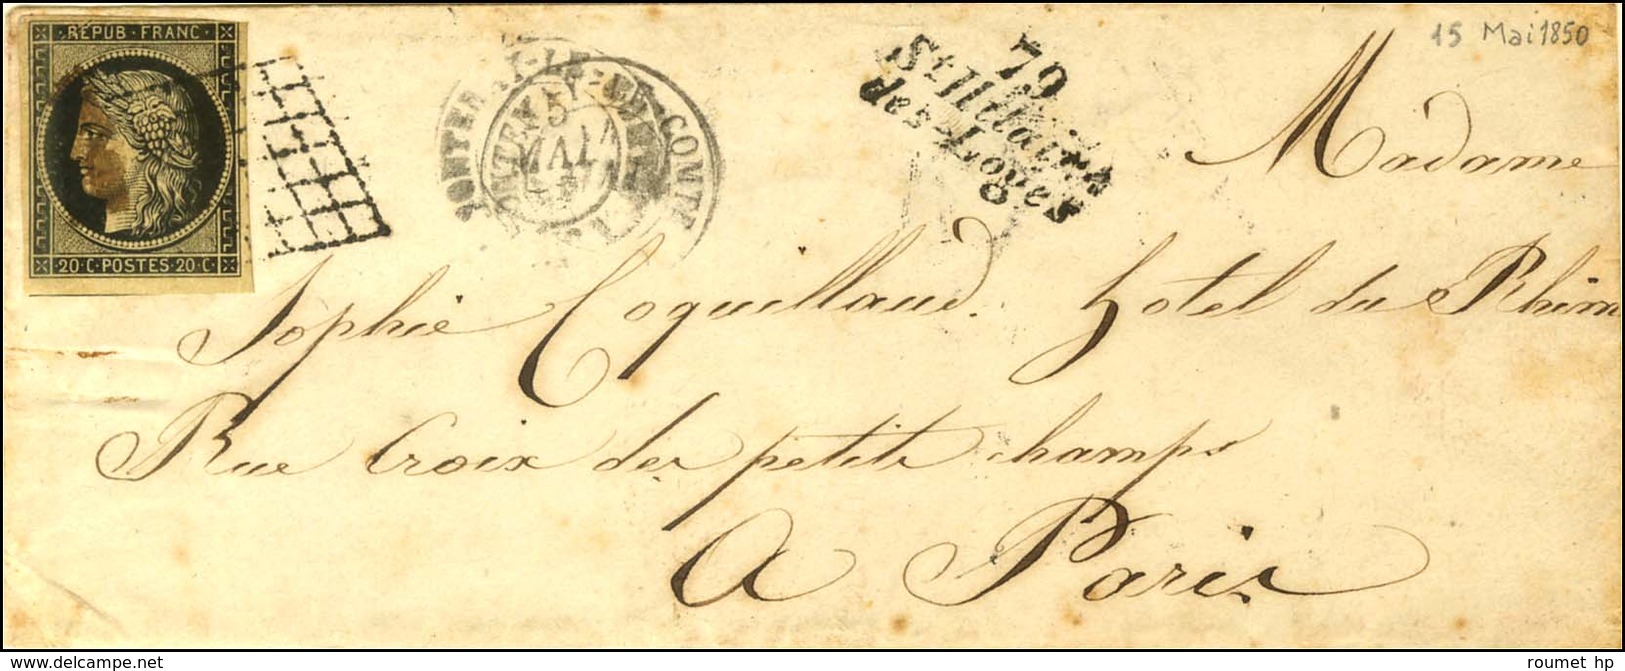 REPUB·FRANC
20·C·POSTES·20·C
FONTENAY-LE-COMTE
5
MAI
79
St Hilaire
des-Loges
15 Mai 1850
Madame
Sophie Coquillaud. hotel du Rhin
Rue Croix des petits champs
A Paris
www.delcampe.net
roumet hp